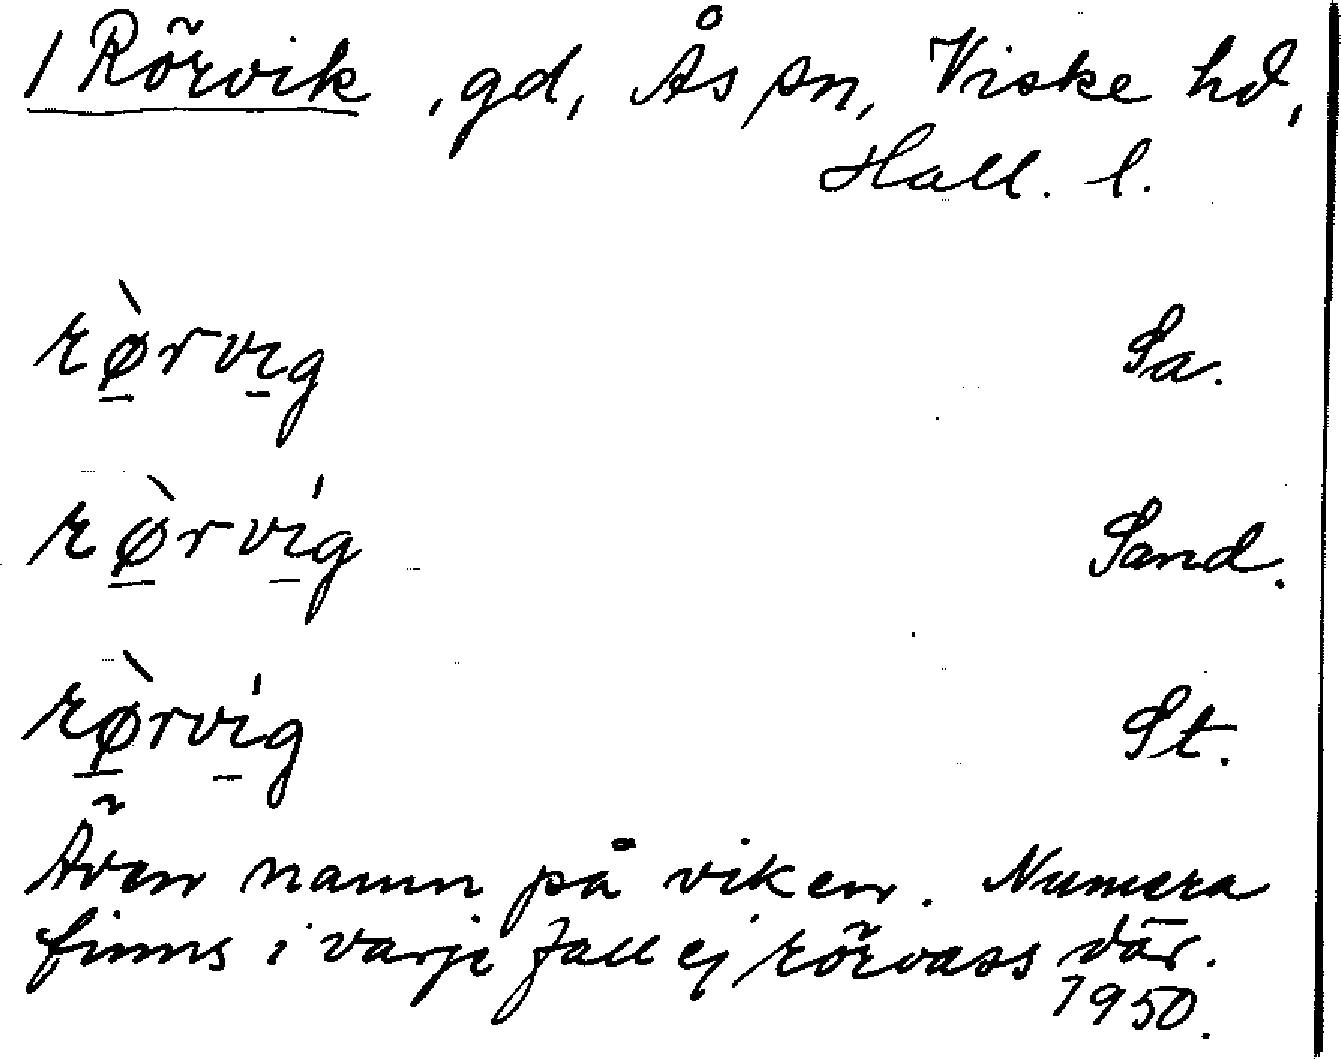 / Rörvik, gd, Ås sn, Viske hd,
Hall. l.
rø̱̀rvi̱g Sa.
rø̱̀rví̱g Sand.
rø̱̀rví̱g St.
Även namn på viken. Numera
finns i varje fall ej rörvass där.
1950.